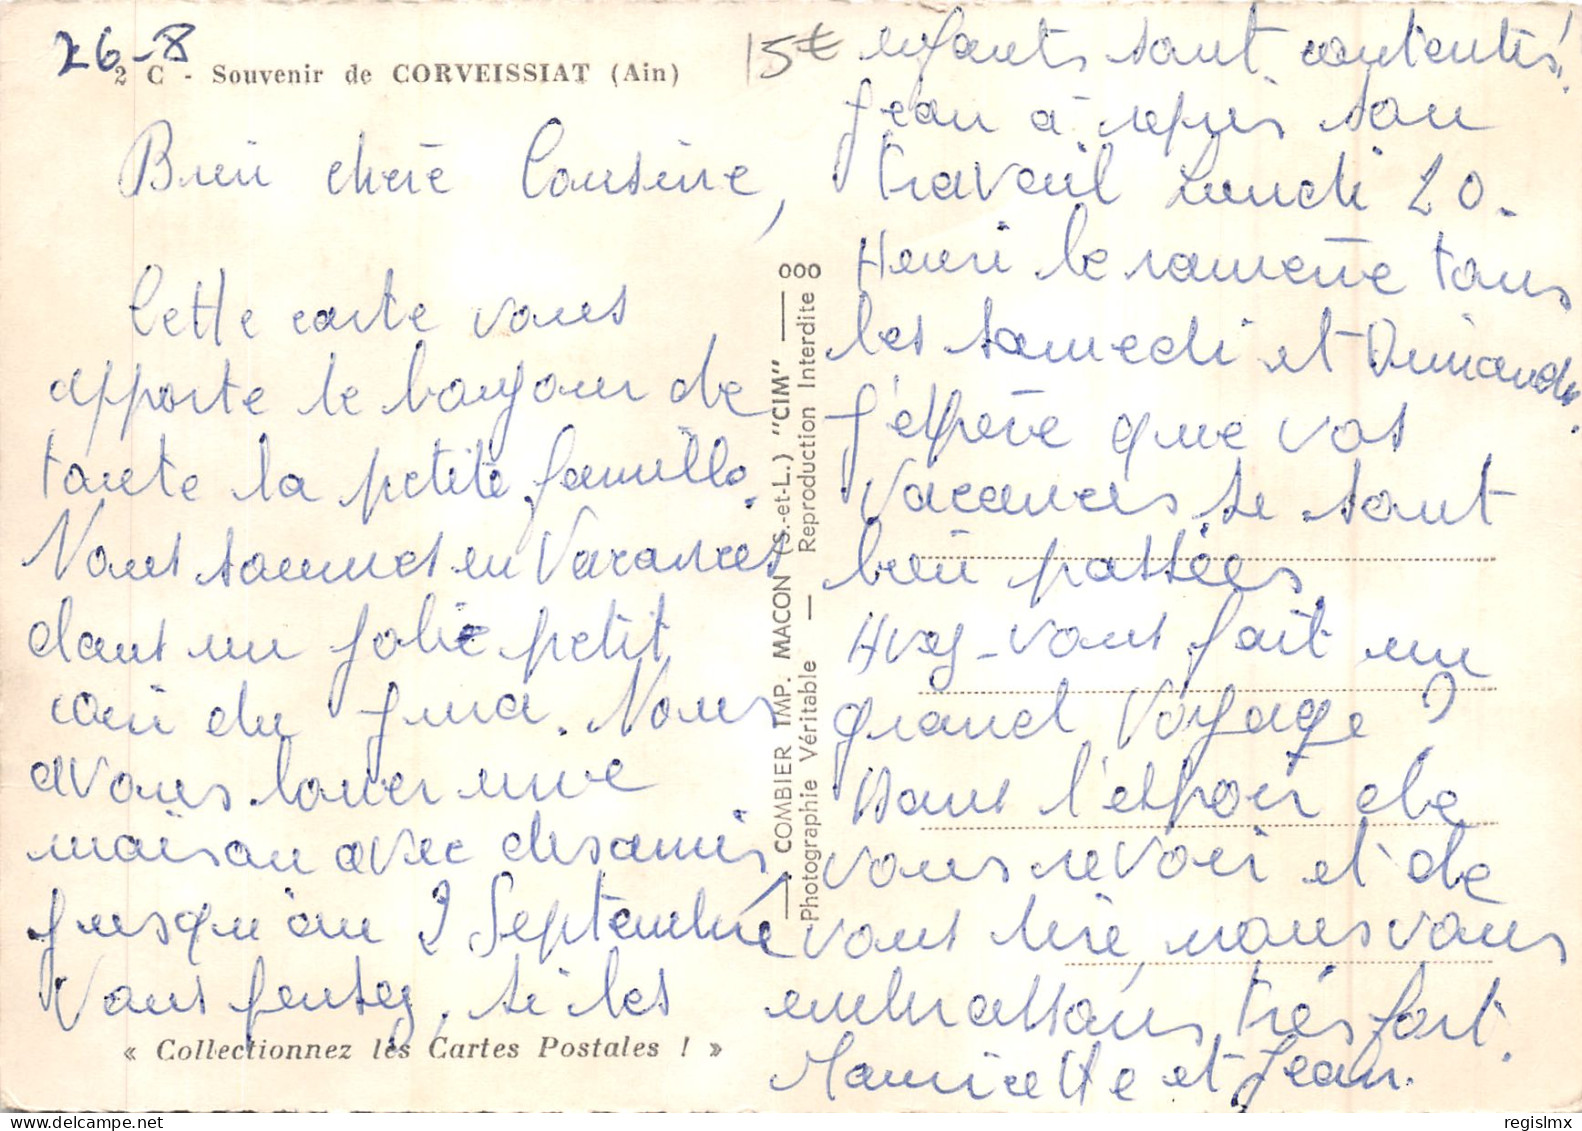 26-8
2 C - Souvenir de CORVEISSIAT (Ain)
Bien chère Cousine,
Cette carte vous
apporte le bonjour de
toute la petite famille.
Nous sommes en Vacances
dans un jolie petit
coin du Jura. Nous
avons louer une
maison avec des amis
jusqu'au 2 Septembre
Vous pensez, si les
« Collectionnez les Cartes Postales ! »
COMBIER IMP. MACON (S.-et-L.) "CIM"
Photographie Véritable — Reproduction Interdite
15€
enfants sont contents!
Jean à repris son
travail Lundi 20.
Henri le ramène tous
les samedi et Dimanche.
J'espère que vos
Vacances se sont
bien passées
Avez-vous fait un
grand Voyage ?
Dans l'espoir de
vous revoir et de
vous lire, nous vous
embrassons très fort.
Mauricette et Jean.
regislmx